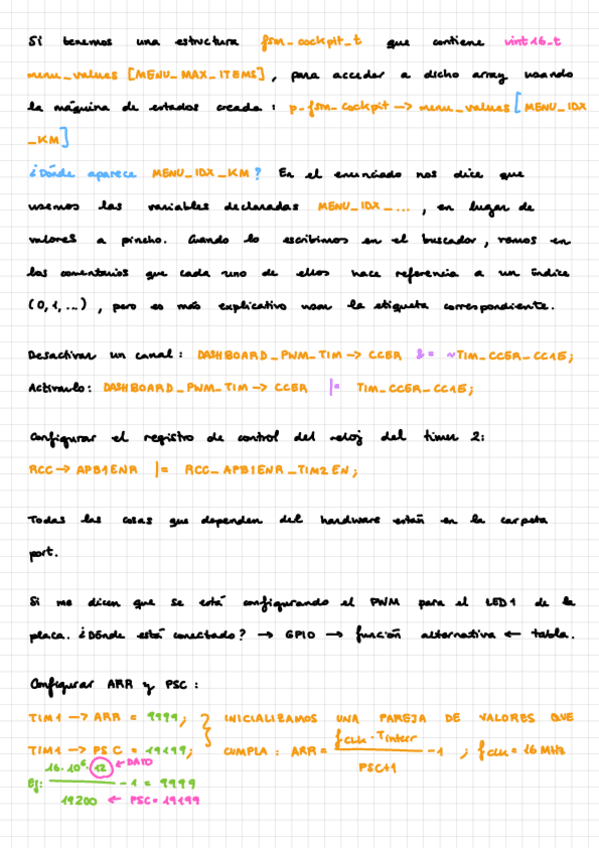 Si tenemos una estructura fsm_cockpit_t que contiene uint16_t
menu_values [MENU_MAX_ITEMS], para acceder a dicho array usando
la máquina de estados creada: p_fsm_cockpit -> menu_values [MENU_IDX
_KM]
¿Dónde aparece MENU_IDX_KM? En el enunciado nos dice que
usemos las variables declaradas MENU_IDX_..., en lugar de
valores a pincho. Cuando lo escribimos en el buscador, vemos en
los comentarios que cada uno de ellos hace referencia a un índice
(0,1,...), pero es más explicativo usar la etiqueta correspondiente.
Desactivar un canal: DASHBOARD_PWM_TIM -> CCER &= ~TIM_CCER_CC1E;
Activarlo: DASHBOARD_PWM_TIM -> CCER |= TIM_CCER_CC1E;
Configurar el registro de control del reloj del timer 2:
RCC -> APB1ENR |= RCC_APB1ENR_TIM2EN;
Todas las cosas que dependen del hardware están en la carpeta
port.
Si me dicen que se está configurando el PWM para el LED1 de la
placa. ¿Dónde está conectado? → GPIO → función alternativa ← tabla.
Configurar ARR y PSC:
TIM1 -> ARR = 9999; } INICIALIZAMOS UNA PAREJA DE VALORES QUE
TIM1 -> PSC = 19199; CUMPLA: ARR = fCLK · Tinterr / PSC+1 - 1 ; fCLK = 16 MHz
Ej: 16·10⁶·12 ← DATO / 19200 ← PSC = 19199 - 1 = 9999